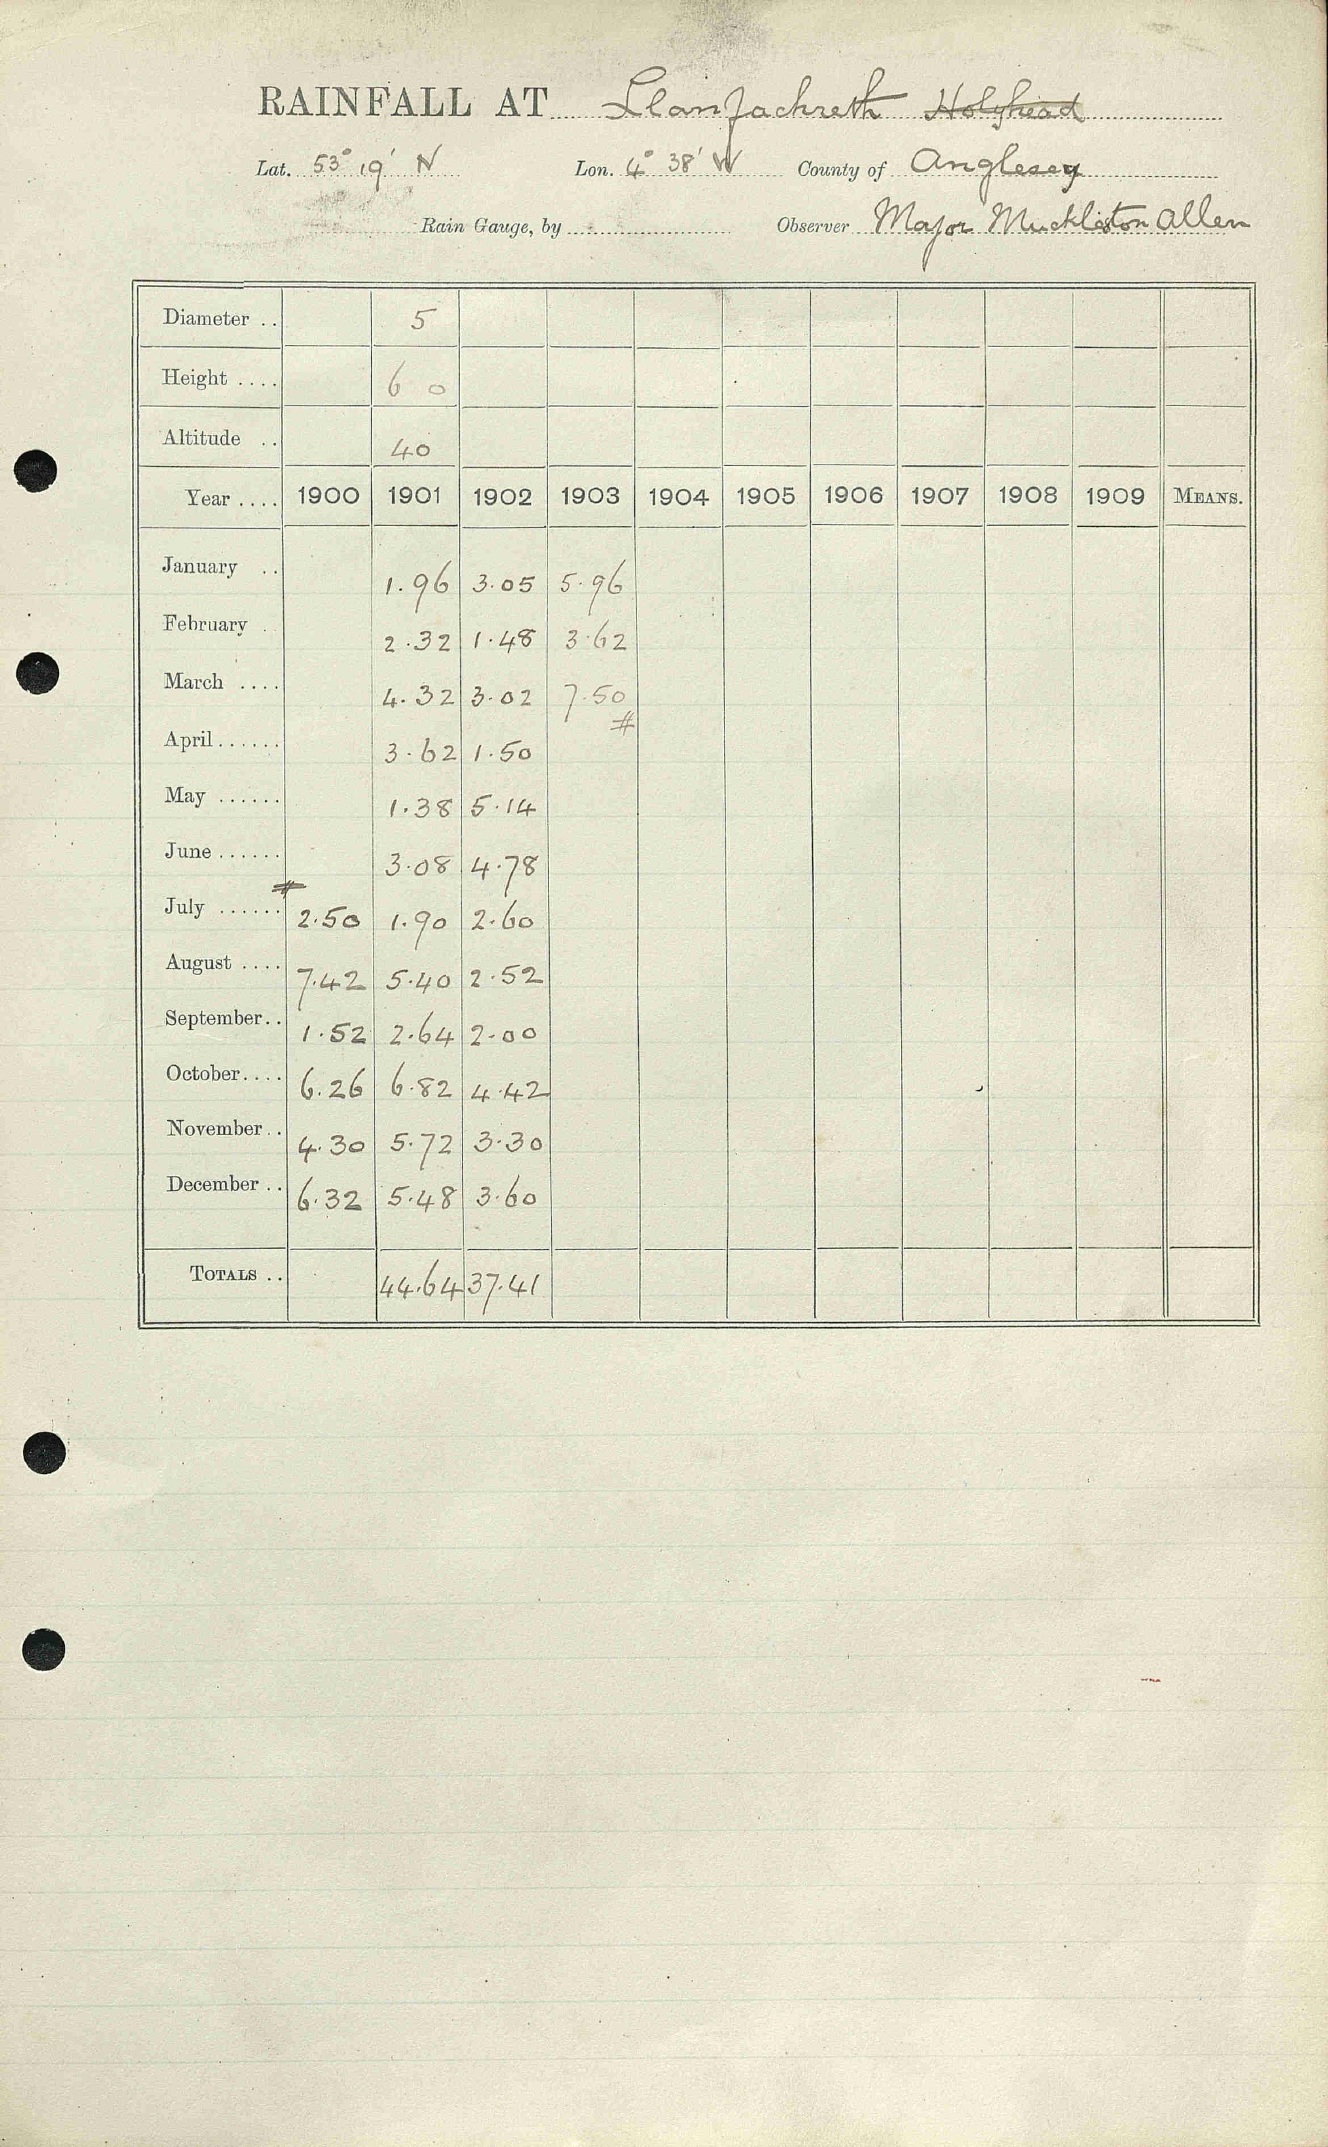 RAINFALL AT Llanfachreth Holyhead
Lat. 53° 19' N Lon. 4° 38' W County of Anglesey
Rain Gauge, by Observer Major Muckleston Allen
Diameter .. 5
Height .... 6 0
Altitude .. 40
Year .... 1900 1901 1902 1903 1904 1905 1906 1907 1908 1909 MEANS.
January .. 1.96 3.05 5.96
February . 2.32 1.48 3.62
March .... 4.32 3.02 7.50
#
April...... 3.62 1.50
May ...... 1.38 5.14
June...... 3.08 4.78
#
July ...... 2.50 1.90 2.60
August .... 7.42 5.40 2.52
September.. 1.52 2.64 2.00
October.... 6.26 6.82 4.42
November.. 4.30 5.72 3.30
December.. 6.32 5.48 3.60
TOTALS .. 44.64 37.41